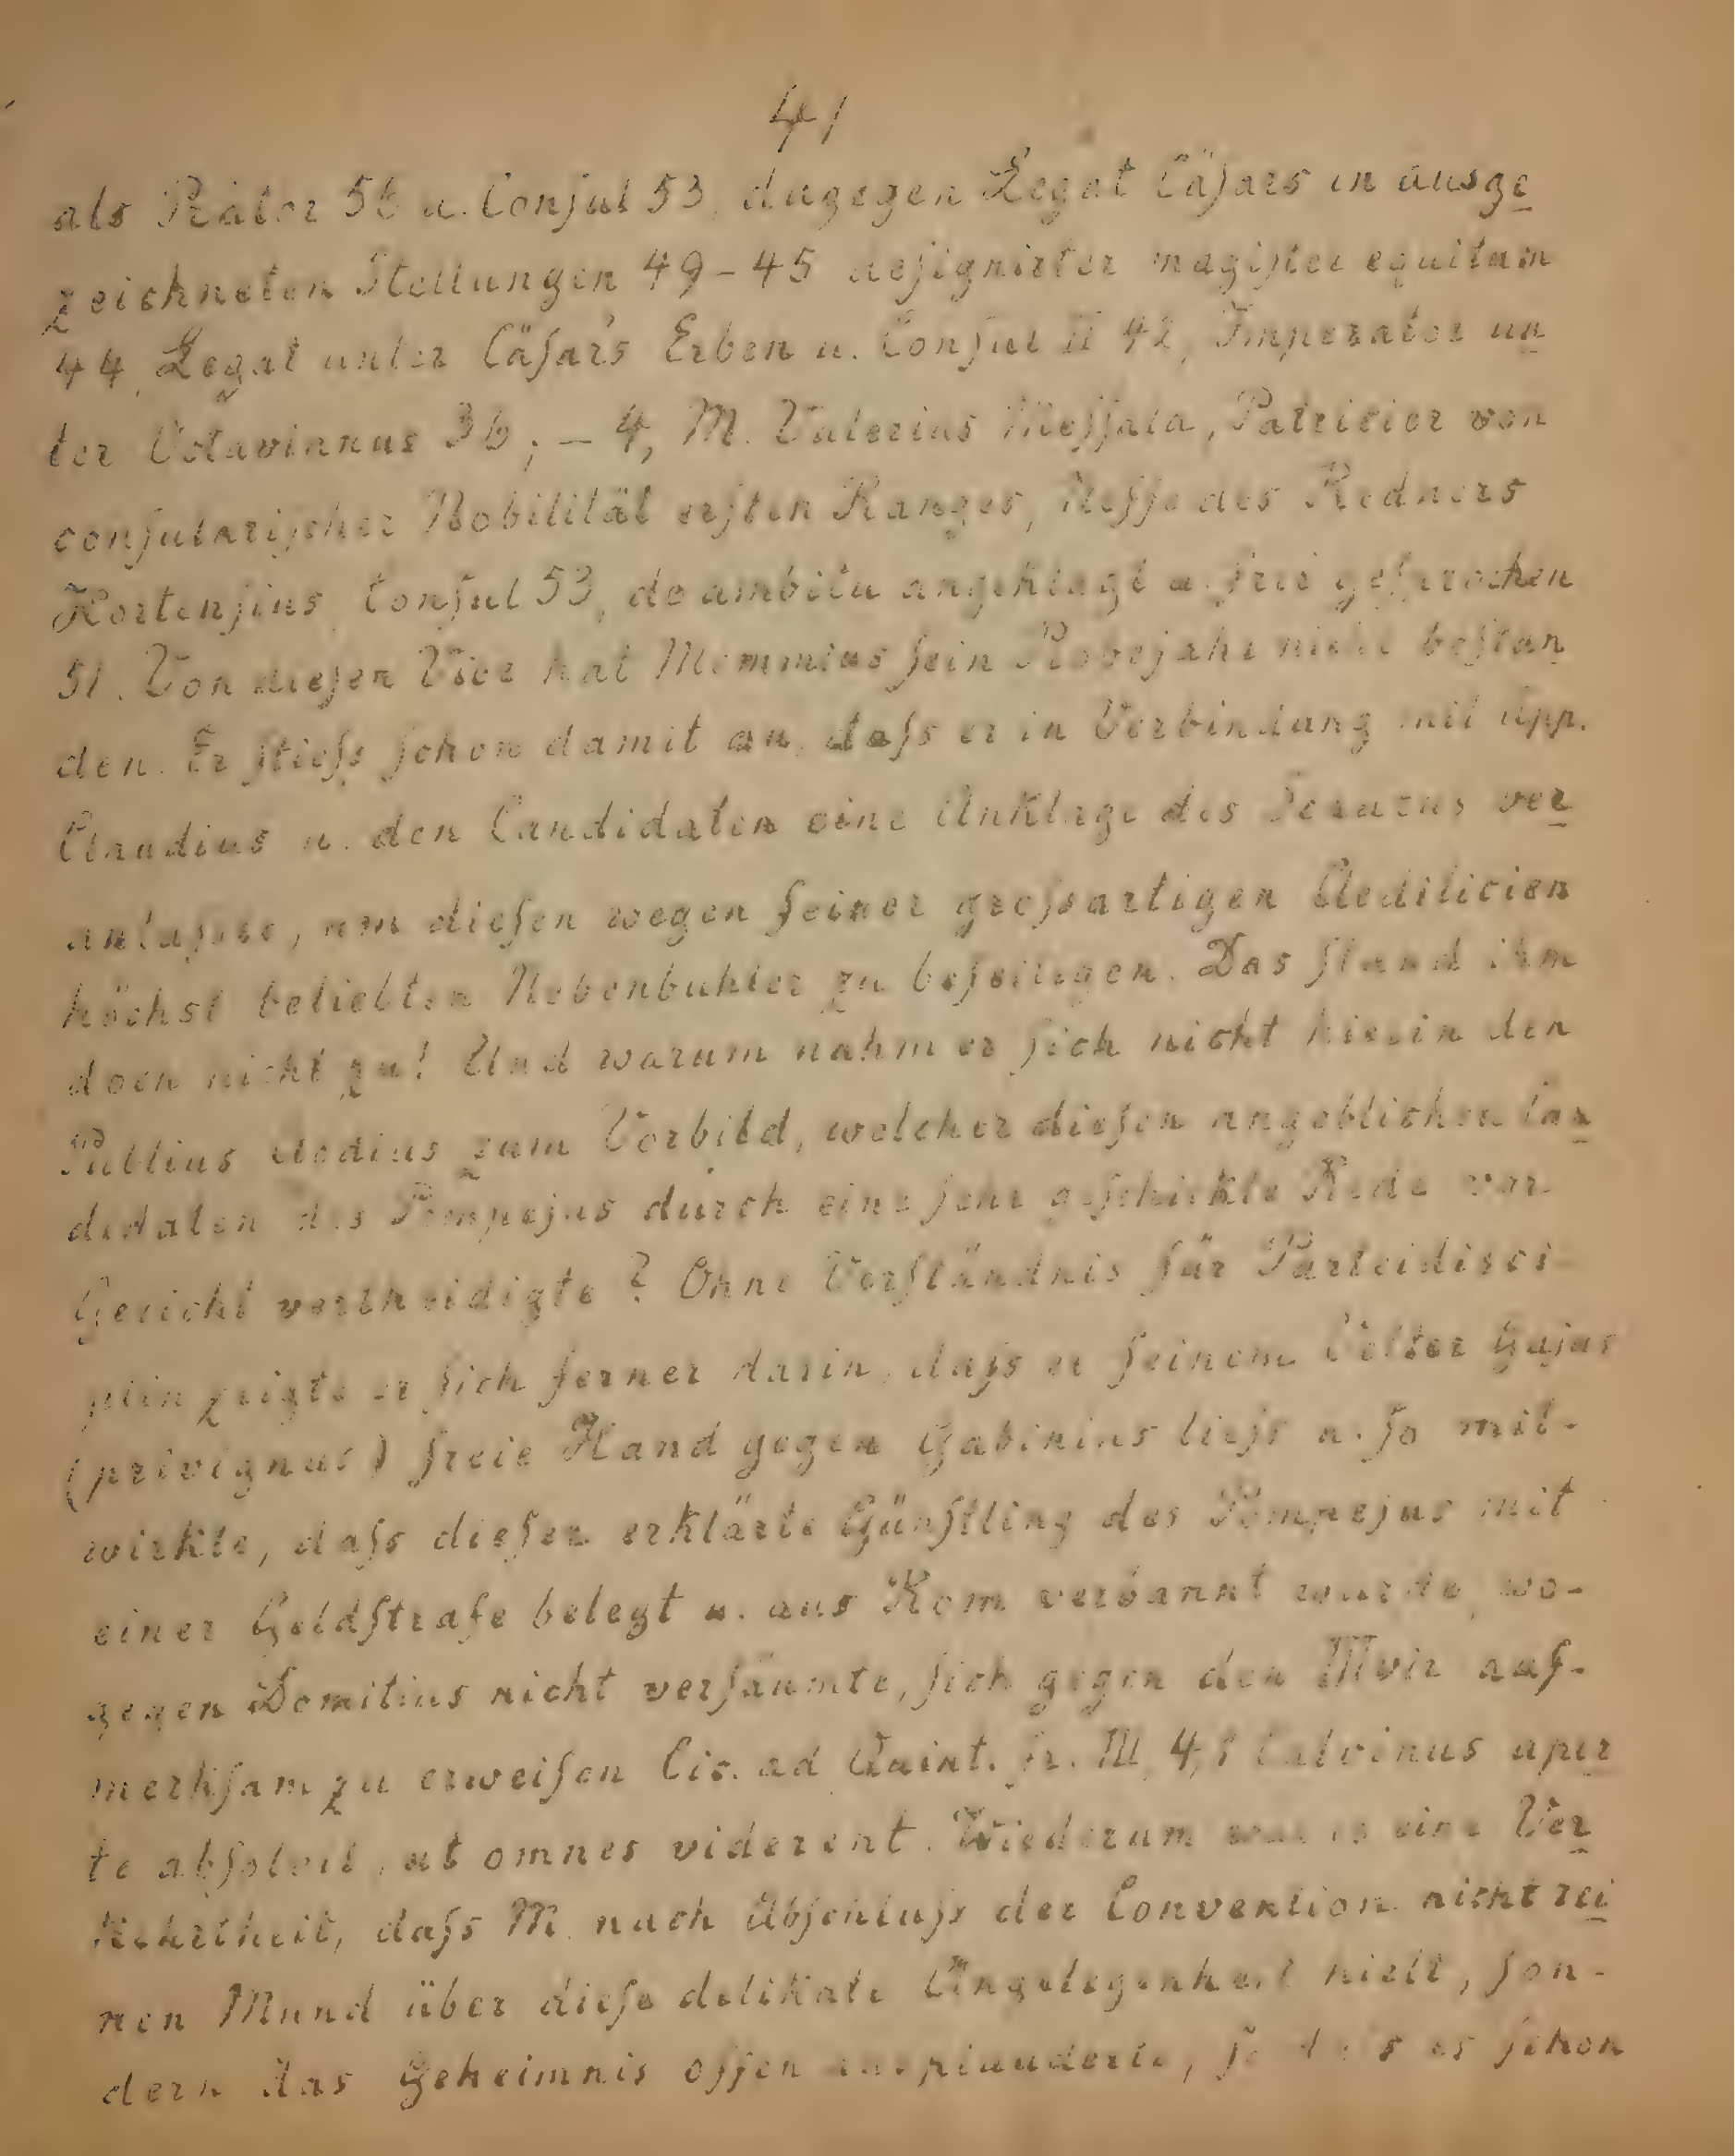 41
als Prätor 56 u. Conſul 53, dagegen Legat Cäſars in ausge
zeichneten Stellungen 49-45 deſignirter magiſter equitum
44, Legat unter Cäſar's Erben u. Conſul II 42, Imperator un
ter Octavianus 36; – 4, M. Valerius Meſſala, Patricier von
conſulariſcher Nobilität erſten Ranges, Neffe des Redners
Hortenſius, Conſul 53, de ambitu angeklagt u. frei geſprochen
51. Von dieſen Vier hat Memmius ſein Probejahr nicht beſtan
den. Er ſtieſs ſchon damit an, daſs er in Verbindung mit App.
Claudius u. den Candidaten eine Anklage des Scaurus ver
anlaſste, um dieſen wegen ſeiner groſsartigen Aedilicien
höchst beliebten Nebenbuhler zu beſeitigen. Das ſtand ihm
doch nicht zu! Und warum nahm er ſich nicht hierin den
Publius Clodius zum Vorbild, welcher dieſen angeblichen Can
didaten des Pompejus durch eine ſehr geſchickte Rede vor
Gericht vertheidigte? Ohne Verſtändnis für Parteidisci-
plin zeigte er ſich ferner darin, daſs er ſeinem Vetter Gajus
(privignus) freie Hand gegen Gabinius lieſs u. ſo mit-
wirkte, daſs dieſer erklärte Günſtling des Pompejus mit
einer Geldſtrafe belegt u. aus Rom verbannt wurde, wo-
gegen Domitius nicht verſäumte, ſich gegen den IIIvir auf-
merkſam zu erweiſen Cic. ad Quint. fr. III, 4,1 Calvinus aper
te abſolvit, ut omnes viderent. Wiederum war es eine Ver
kehrtheit, daſs M. nach Abſchluſs der Convention nicht rei
nen Mund über dieſe delikate Angelegenheit hielt, ſon-
dern das Geheimnis offen ausplauderte, ſo daſs es ſchon